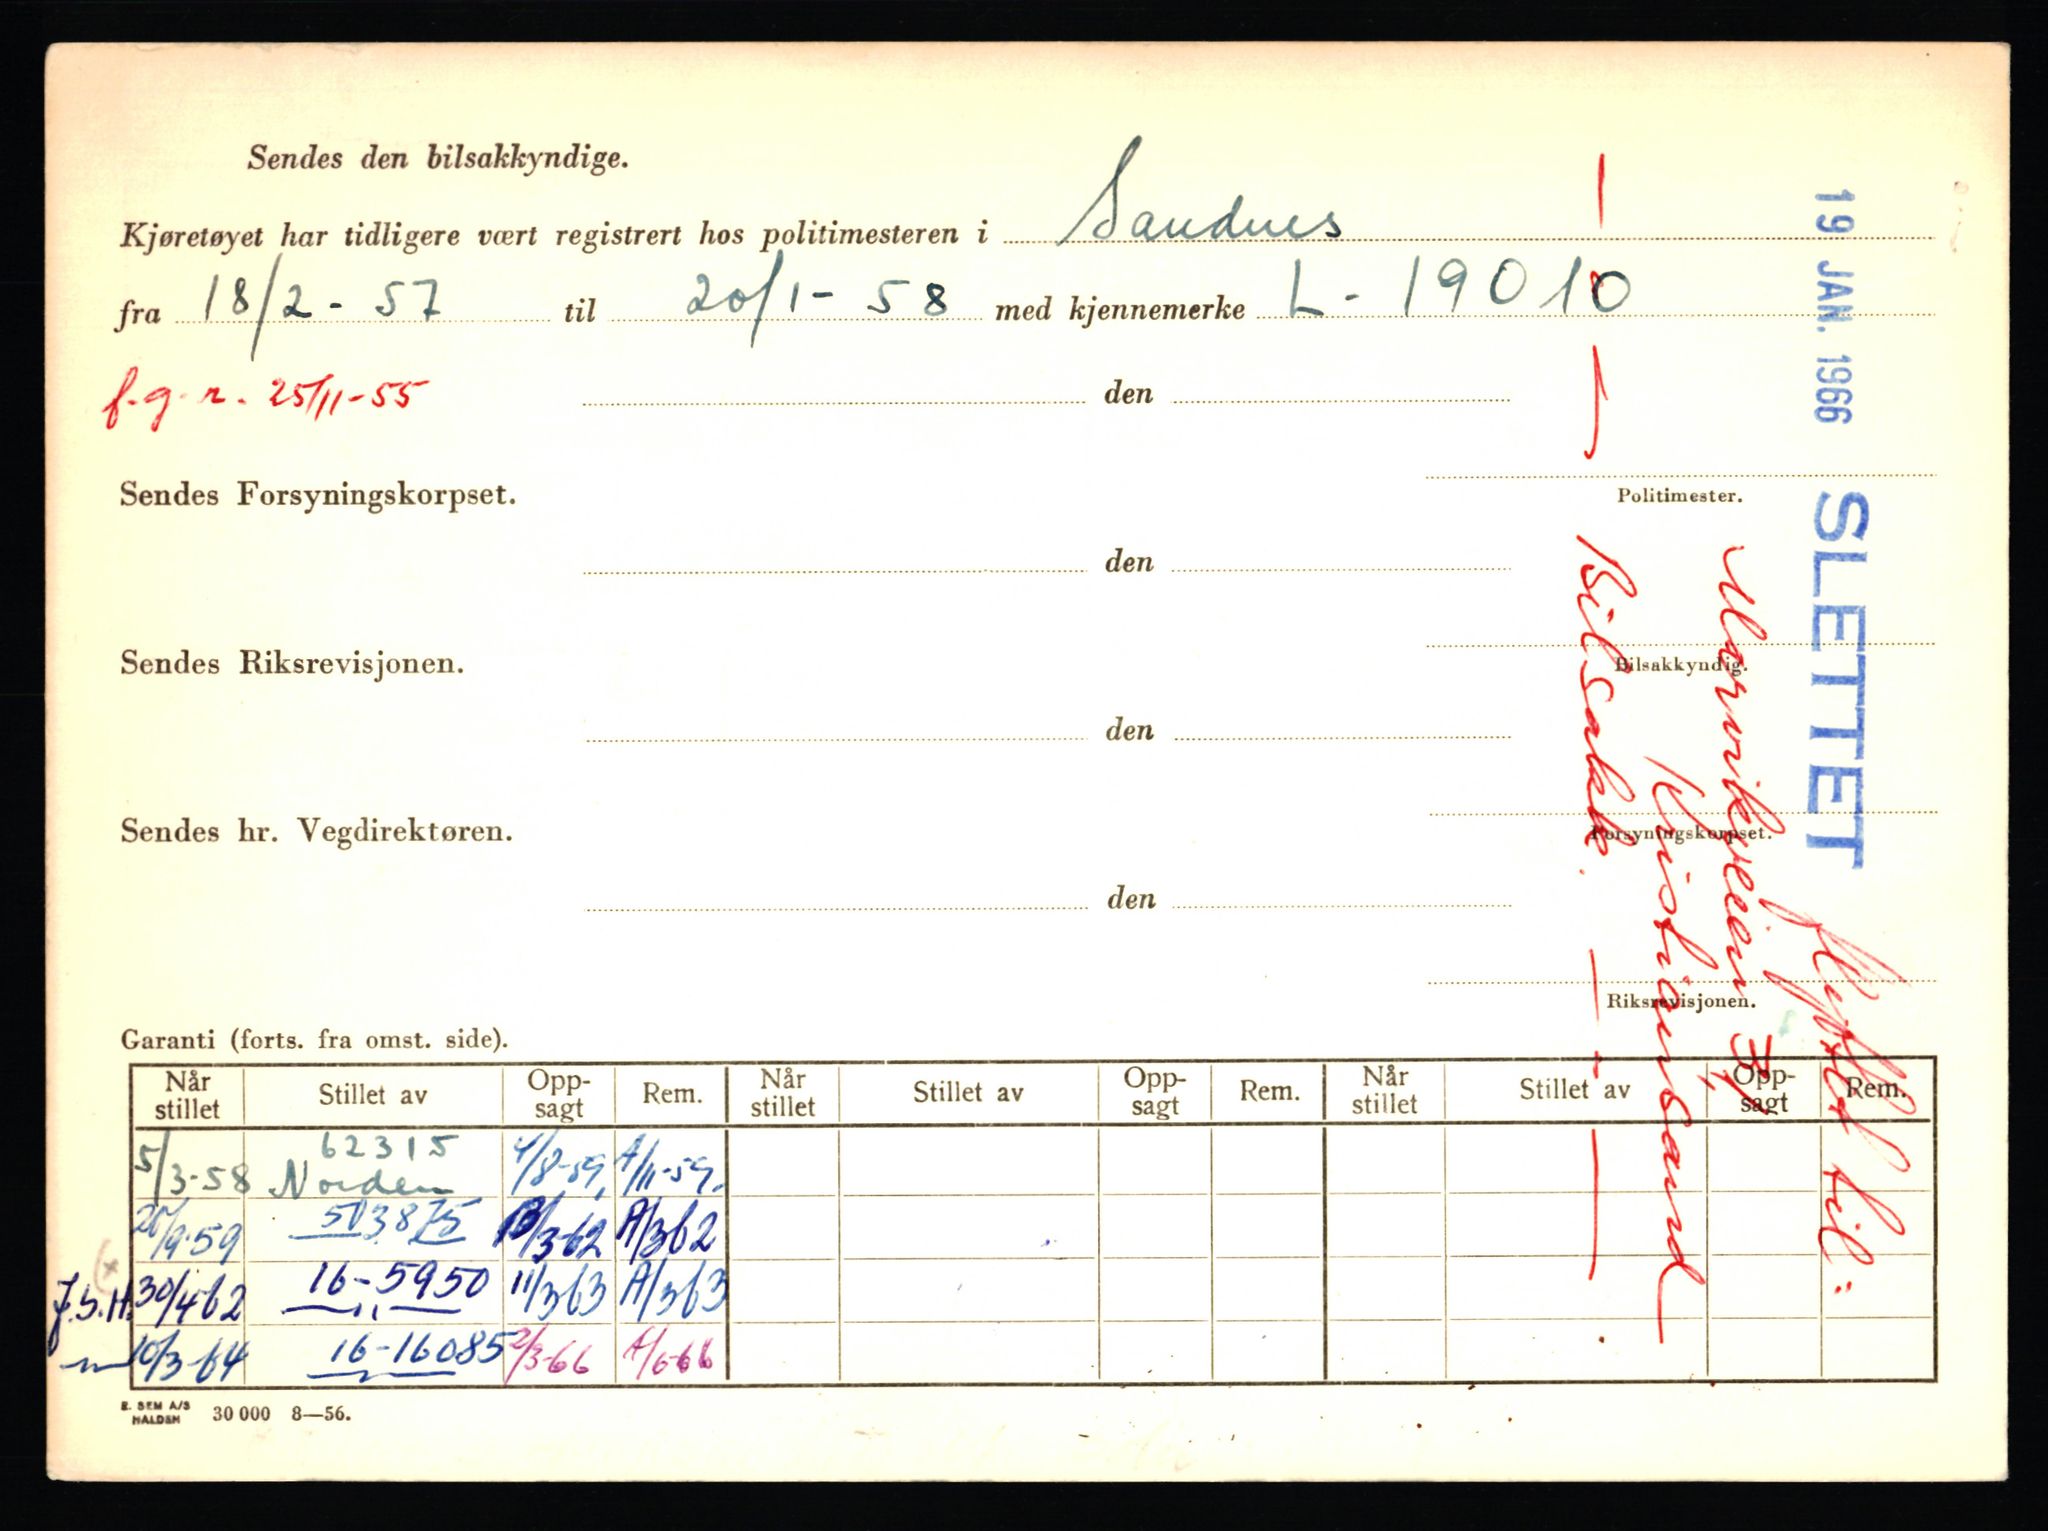 Sendes den bilsakkyndige.
Kjøretøyet har tidligere vært registrert hos politimesteren i Sandnes
fra 18/2-57 til 20/1-58 med kjennemerke L-19010
f.g.r. 25/11-55 den
Politimester.
Sendes Forsyningskorpset.
den
Bilsakkyndig.
Sendes Riksrevisjonen.
den
Forsyningskorpset.
Sendes hr. Vegdirektøren.
den
Riksrevisjonen.
19 JAN. 1966 SLETTET
flyttet til:
Marvikveien 31,
Kristiansand
Bilsakk.
Garanti (forts. fra omst. side).
Når stillet Stillet av Opp-sagt Rem. Når stillet Stillet av Opp-sagt Rem. Når stillet Stillet av Opp-sagt Rem.
5/3-58 62315 Norden 4/8-59, A/11-59.
/9-59 503875 /3-62 A/3 62
J.S.H. 30/4-62 16-5950 11/3 63 A/3 63
10/3-64 16-16085 2/3-66 A/6-66
E. SEM A/S
HALDEN 30 000 8—56.